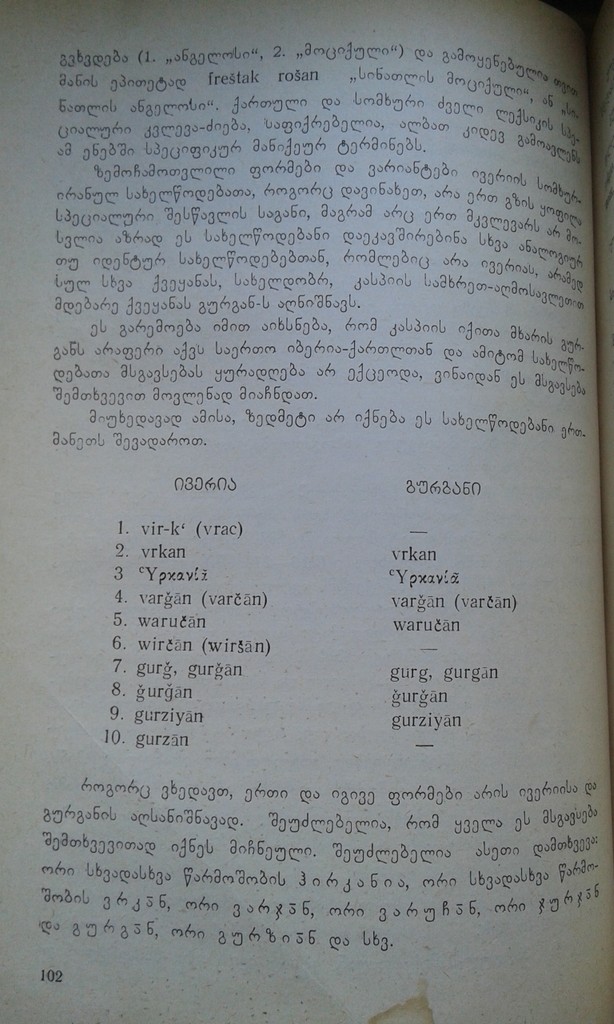 გვხვდება (1. „ანგელოსი“, 2. „მოციქული“) და გამოყენებულია თვით
მანის ეპითეტად freštak rošan „სინათლის მოციქული“, ან „სი-
ნათლის ანგელოსი“. ქართული და სომხური ძველი ლექსიკის სპე-
ციალური კვლევა-ძიება, საფიქრებელია, ალბათ კიდევ გამოავლენს
ამ ენებში სპეციფიკურ მანიქეურ ტერმინებს.
ზემოჩამოთვლილი ფორმები და ვარიანტები ივერიის სომხურ-
ირანულ სახელწოდებათა, როგორც დავინახეთ, არა ერთ გზის ყოფილა
სპეციალური შესწავლის საგანი, მაგრამ არც ერთ მკვლევარს არ მო-
სვლია აზრად ეს სახელწოდებანი დაეკავშირებინა სხვა ანალოგიურ
თუ იდენტურ სახელწოდებებთან, რომლებიც არა ივერიას, არამედ
სულ სხვა ქვეყანას, სახელდობრ, კასპიის სამხრეთ-აღმოსავლეთით
მდებარე ქვეყანას გურგან-ს აღნიშნავს.
ეს გარემოება იმით აიხსნება, რომ კასპიის იქითა მხარის გურ-
განს არაფერი აქვს საერთო იბერია-ქართლთან და ამიტომ სახელწო-
დებათა მსგავსებას ყურადღება არ ექცეოდა, ვინაიდან ეს მსგავსება
შემთხვევით მოვლენად მიაჩნდათ.
მიუხედავად ამისა, ზედმეტი არ იქნება ეს სახელწოდებანი ერთ-
მანეთს შევადაროთ.
ივერია გურგანი
1. vir-k‘ (vrac) —
2. vrkan vrkan
3 ʿΥρκανίᾶ ʿΥρκανίᾶ
4. varǧān (varčān) varǧān (varčān)
5. waručān waručān
6. wirčān (wiršān) —
7. gurǧ, gurǧān gurg, gurgān
8. ǧurǧān ǧurǧān
9. gurziyān gurziyān
10. gurzān —
როგორც ვხედავთ, ერთი და იგივე ფორმები არის ივერიისა და
გურგანის აღსანიშნავად. შეუძლებელია, რომ ყველა ეს მსგავსება
შემთხვევითად იქნეს მიჩნეული. შეუძლებელია ასეთი დამთხვევა:
ორი სხვადასხვა წარმოშობის ჰირკანია, ორი სხვადასხვა წარმო-
შობის ვრკა̄ნ, ორი ვარჯა̄ნ, ორი ვარუჩა̄ნ, ორი ჯურჯა̄ნ
და გურგა̄ნ, ორი გურზია̄ნ და სხვ.
102